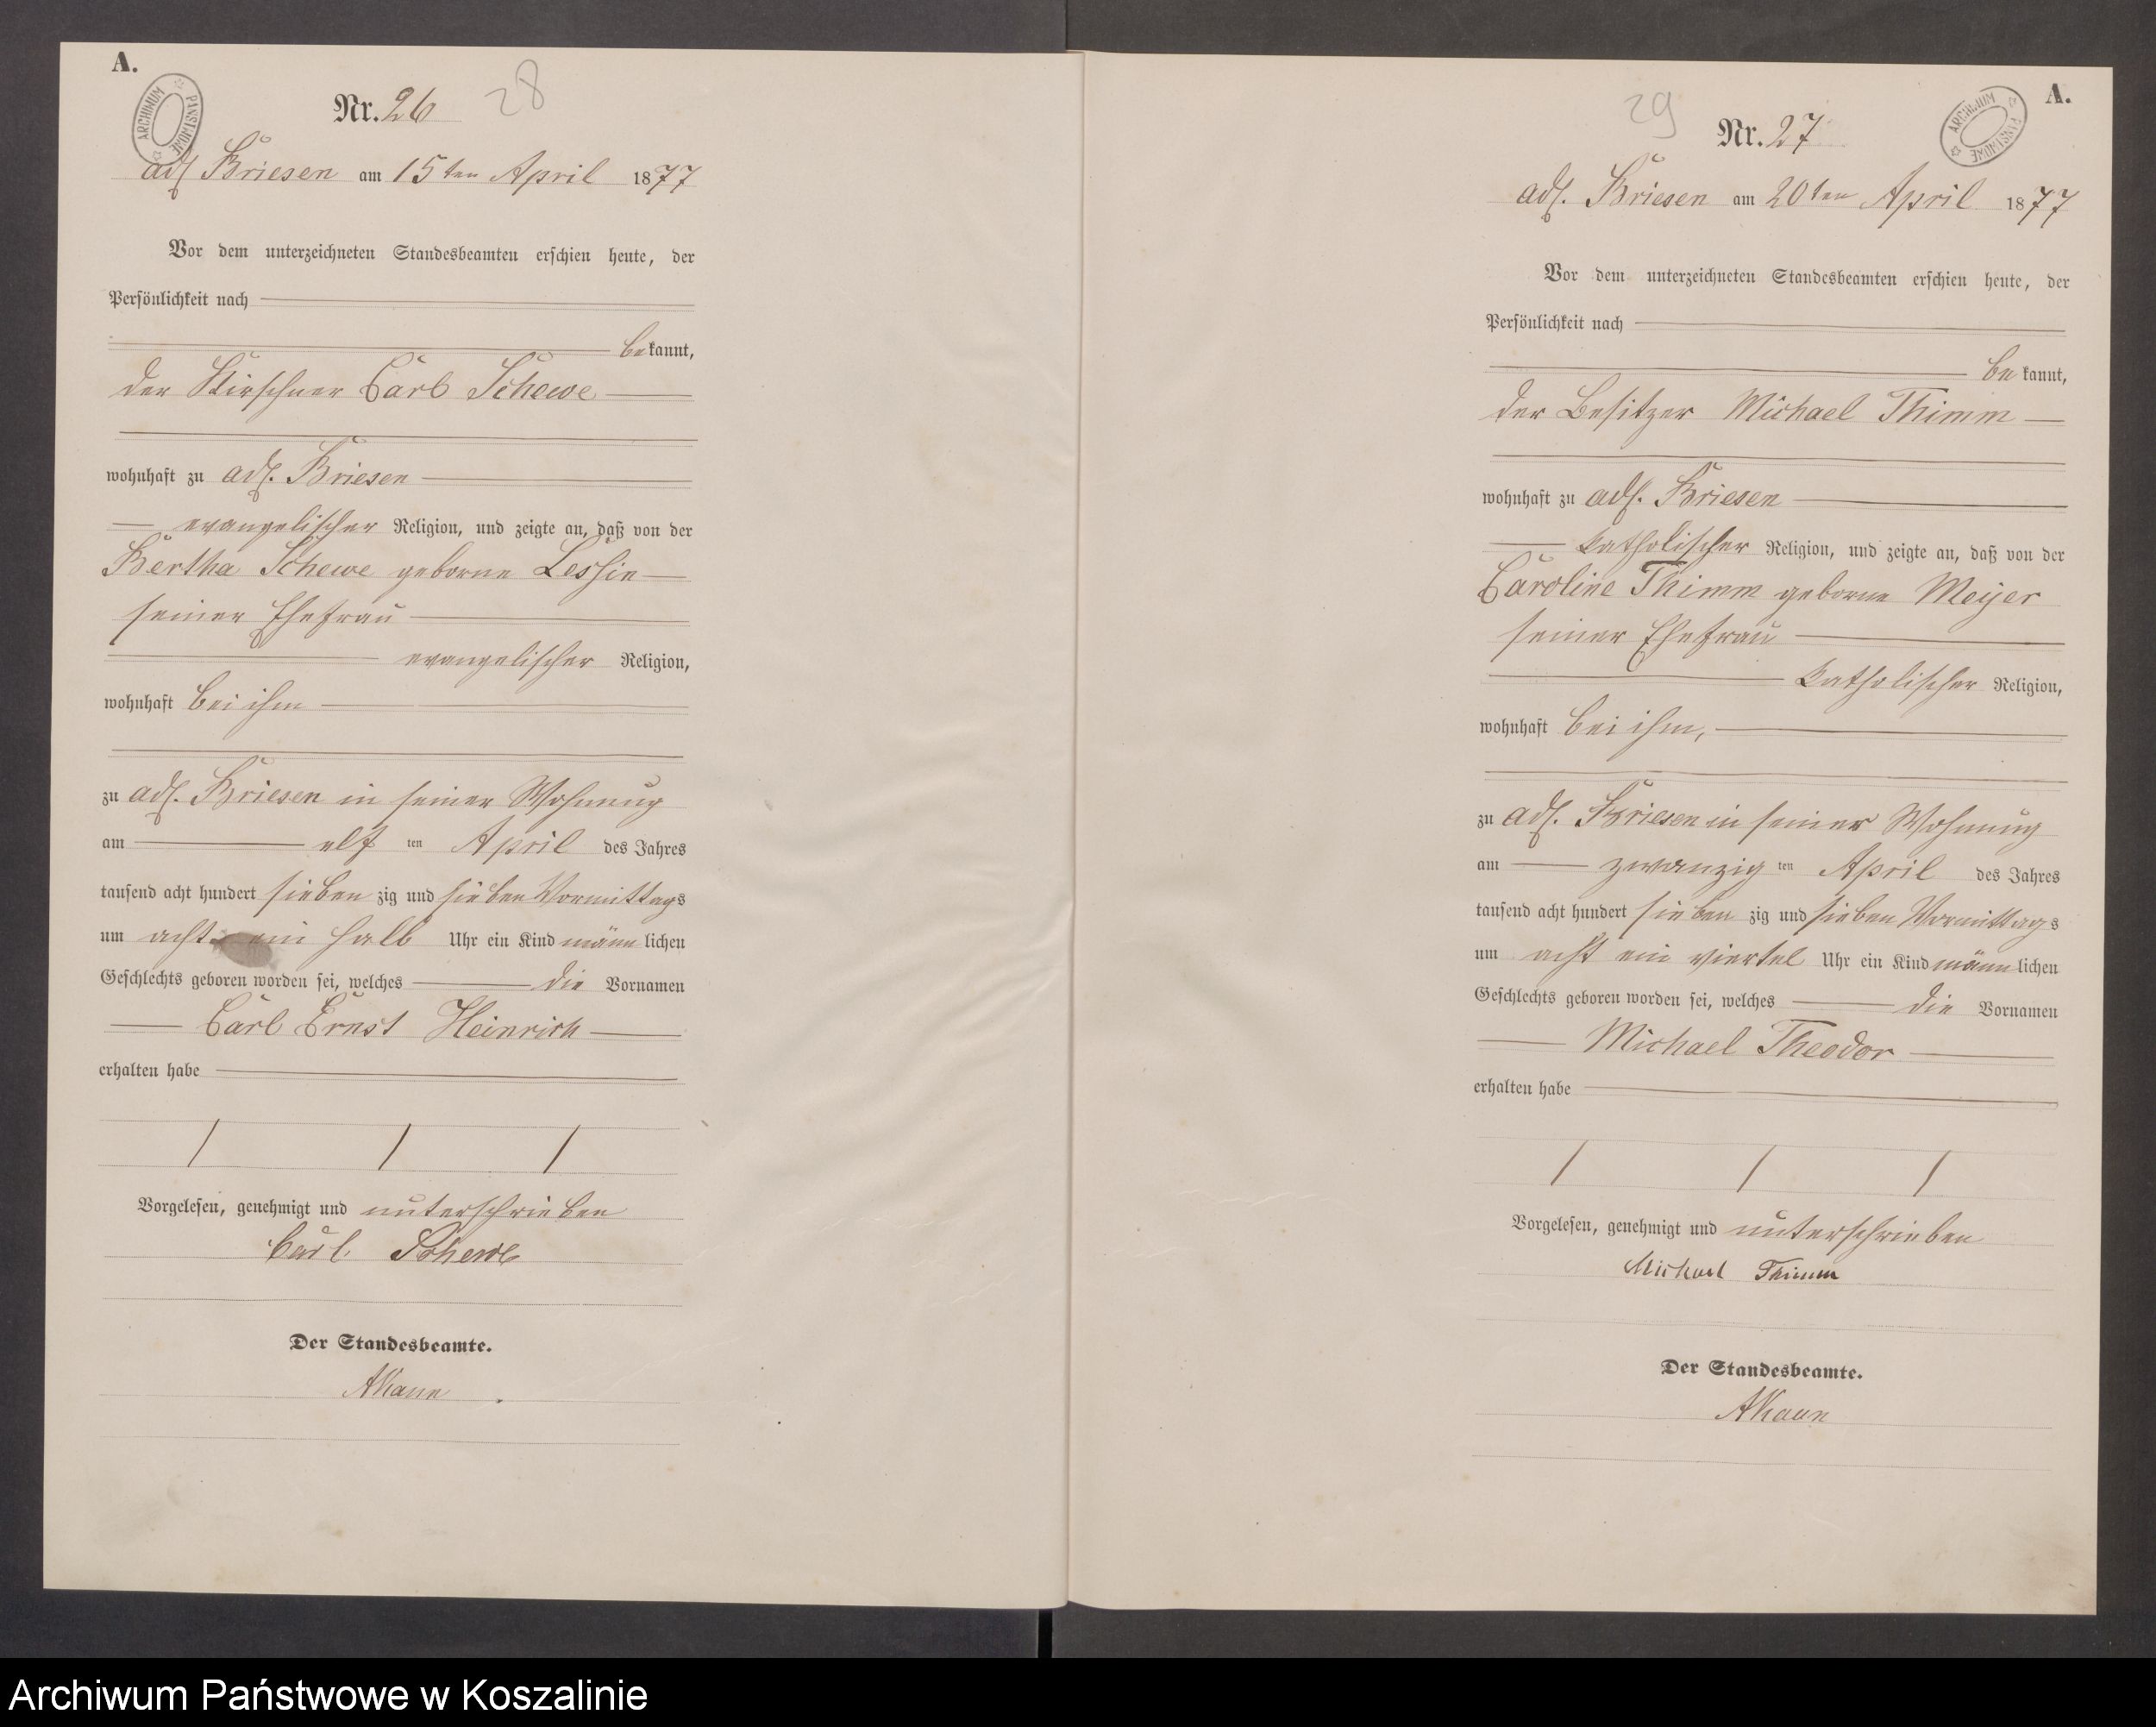 A.
ARCHIWUM PAŃSTWOWE
Nr. 26
28
adl. Briesen am 15ten April 1877
Vor dem unterzeichneten Standesbeamten erschien heute, der
Persönlichkeit nach
bekannt,
der Kirschner Carl Schewe
wohnhaft zu adl. Briesen
evangelischer Religion, und zeigte an, daß von der
Bertha Schewe geborne Lessin
seiner Ehefrau
evangelischer Religion,
wohnhaft bei ihm
zu adl. Briesen in seiner Wohnung
am elf ten April des Jahres
tausend acht hundert sieben zig und sieben Vormittags
um acht ein halb Uhr ein Kind männlichen
Geschlechts geboren worden sei, welches die Vornamen
Carl Ernst Heinrich
erhalten habe
Vorgelesen, genehmigt und unterschrieben
Carl Schewe
Der Standesbeamte.
29
Nr. 27
ARCHIWUM PAŃSTWOWE
A.
adl. Briesen am 20ten April 1877
Vor dem unterzeichneten Standesbeamten erschien heute, der
Persönlichkeit nach
bekannt,
der Besitzer Michael Thimm
wohnhaft zu adl. Briesen
katholischer Religion, und zeigte an, daß von der
Caroline Thimm geborne Meijer
seiner Ehefrau
katholischer Religion,
wohnhaft bei ihm,
zu adl. Briesen in seiner Wohnung
am zwanzig ten April des Jahres
tausend acht hundert sieben zig und sieben Vormittags
um acht ein viertel Uhr ein Kind männlichen
Geschlechts geboren worden sei, welches die Vornamen
Michael Theodor
erhalten habe
Vorgelesen, genehmigt und unterschrieben
Michael Thimm
Der Standesbeamte.
Archiwum Państwowe w Koszalinie